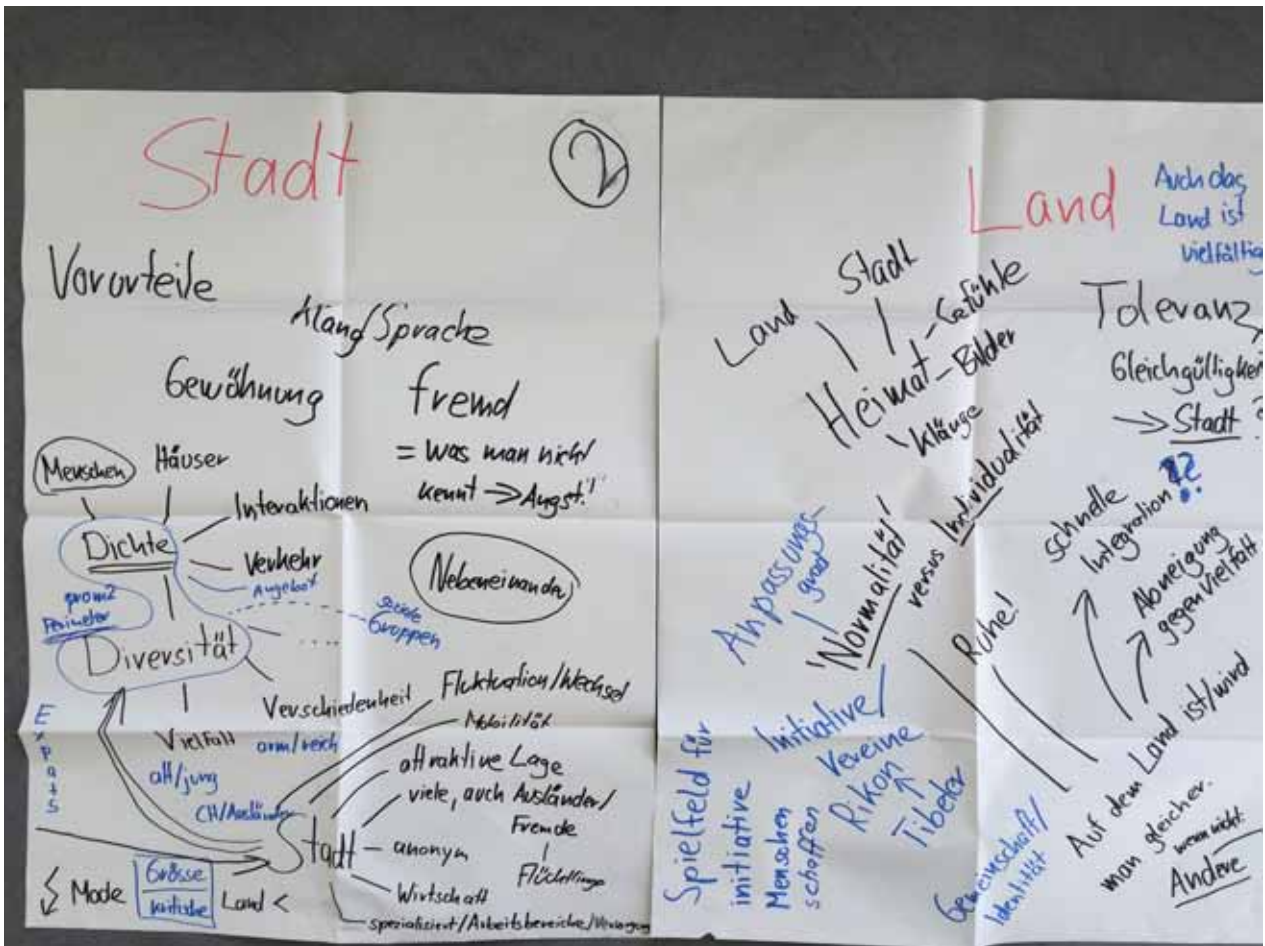 Stadt
2
Vorurteile
Klang/Sprache
Gewöhnung
fremd
= Was man nicht
kennt → Angst!"
Menschen
Häuser
Interaktionen
Dichte
Verkehr
Angebot
prom2
Perimeter
Nebeneinander
soziale
Gruppen
Diversität
....
Verschiedenheit
arm/reich
Vielfalt
alt/jung
CH/Ausländer
Expats
Fluktuation/Wechsel
Mobilität
attraktive Lage
viele, auch Ausländer/
Fremde
Flüchtlinge
Stadt
anonym
Wirtschaft
spezialisiert/Arbeitsbereiche/Versorgung
Mode
Grösse
kritische
Land <
Land
Auch das
Land ist
vielfältig
Land
Stadt
Heimat
Gefühle
Bilder
Klänge
Toleranz
Gleichgültigkei
→ Stadt ?
Anpassungs-
"Normalität"
versus
Individualität
schnelle
Integration ??
Abneigung
gegen Vielfalt
Ruhe!
Initiative/
Vereine
Rikon
Tibeter
Spielfeld für
initiative
Menschen
schaffen
Gemeinschaft/
Identität
Auf dem Land ist/wird
man gleicher.
wenn nicht:
Andere